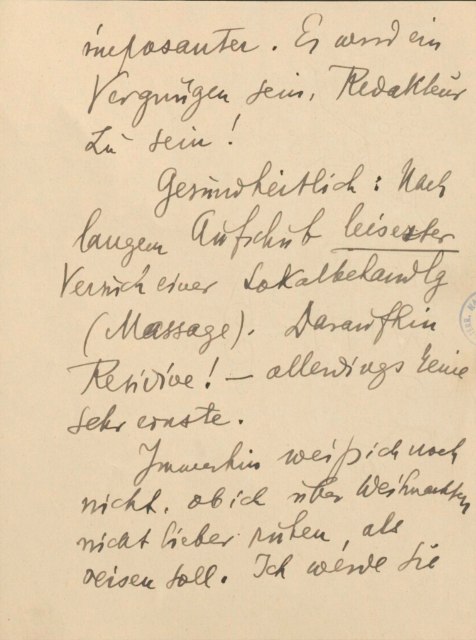 imposanter. Es wird ein
Vergnügen sein, Redakteur
zu sein!
Gesundheitlich: Nach
langem Aufschub leisester
Versuch einer Lokalbehandlg
(Massage). Daraufhin
Residive! – allerdings keine
sehr ernste.
Immerhin weiß ich noch
nicht, ob ich über Weihnachten
nicht lieber ruhen, als
reisen soll. Ich werde Sie